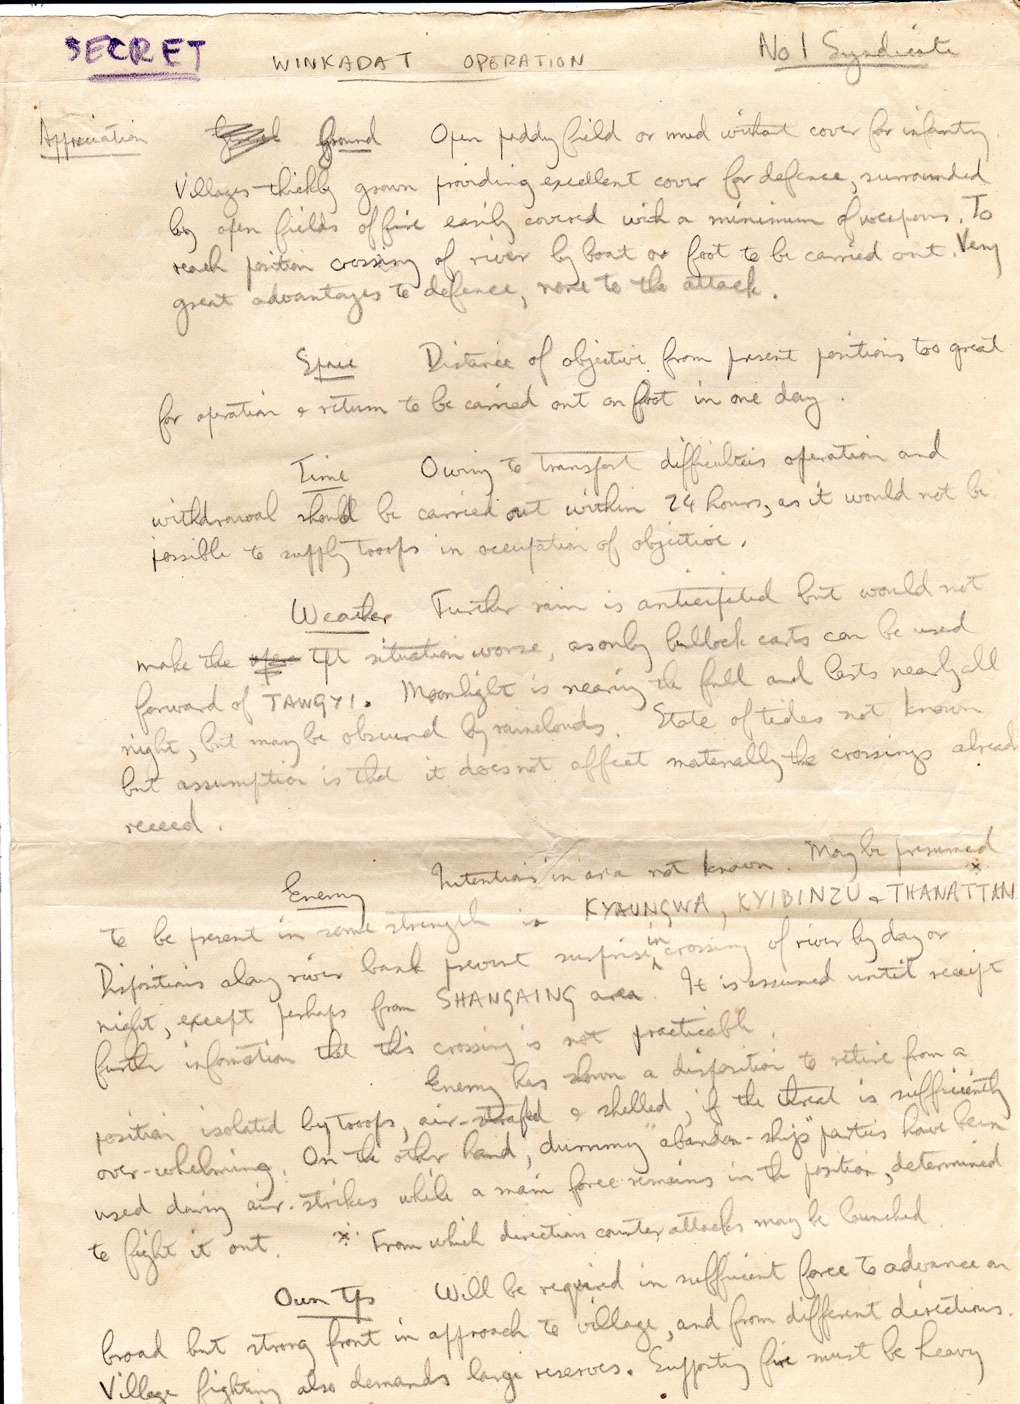 SECRET WINKADAT OPERATION No 1 Syndicate
Appreciation Ground Open paddy field or mud without cover for infantry.
Villages thickly grown providing excellent cover for defence, surrounded
by open fields of fire easily covered with a minimum of weapons. To
reach position crossing of river by boat or foot to be carried out. Very
great advantages to defence, none to the attack.
Space Distance of objective from present positions too great
for operation & return to be carried out on foot in one day.
Time Owing to transport difficulties operation and
withdrawal should be carried out within 24 hours, as it would not be
possible to supply troops in occupation of objective.
Weather Further rain is anticipated but would not
make the tpt situation worse, as only bullock carts can be used
forward of TAWGYI. Moonlight is nearing the full and lasts nearly all
night, but may be obscured by rainclouds. State of tides not known
but assumption is that it does not affect materially the crossings alread
recced.
Enemy Intentions in area not known. May be presumed
to be present in some strength in KYAUNGWA, KYIBINZU & THANATTAN *
Dispositions along river bank prevent surprise in crossing of river by day or
night, except perhaps from SHANGAING area. It is assumed until receipt
further information that this crossing is not practicable.
Enemy has shown a disposition to retire from a
position isolated by troops, air-strafed & shelled, if the threat is sufficiently
over-whelming. On the other hand, dummy "abandon-ship" parties have been
used during air-strikes while a main force remains in the position, determined
to fight it out. * From which direction counter attacks may be launched.
Own Tps Will be required in sufficient force to advance on
broad but strong front in approach to village, and from different directions.
Village fighting also demands large reserves. Supporting fire must be heavy